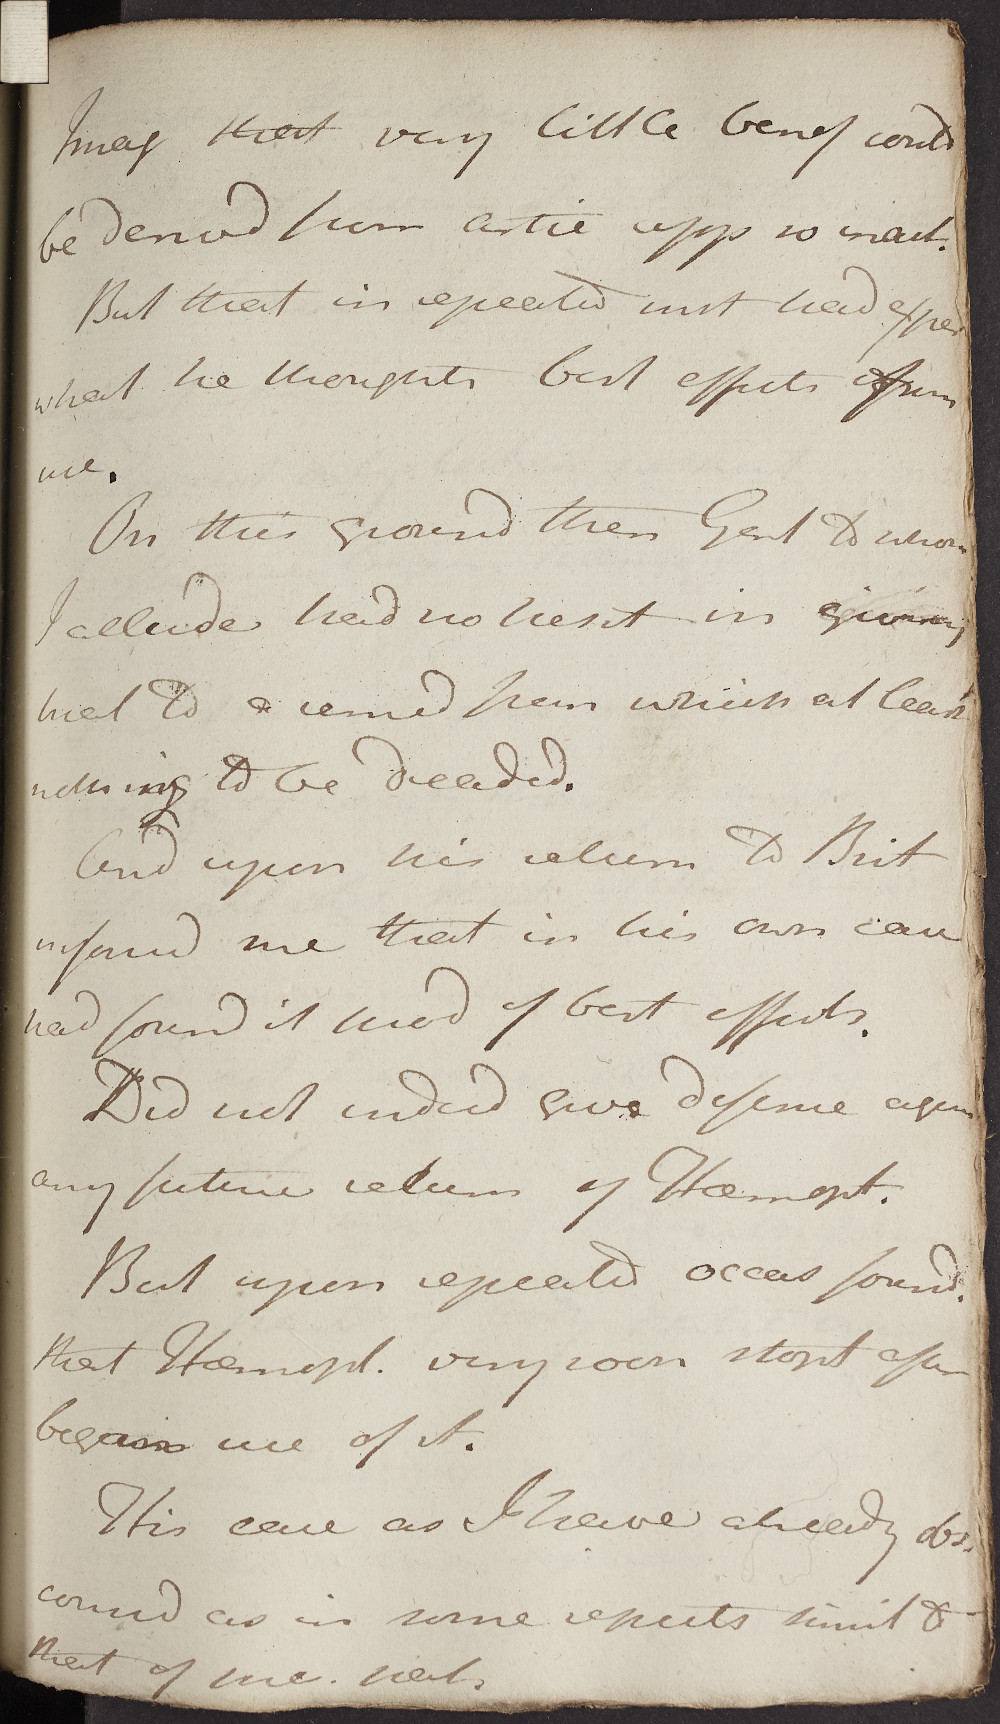 Imag that very little benef could
be derived from artic app so inact.
But that in repeated inst had exper
what he thought best effects from
use.
On this ground then Gent to whom
I allude had no hesit in giving
trial to a remed from which at least
nothing to be dreaded.
And upon his return to Brit
informd me that in his own case
had found it prod of best effects.
Did not indeed give defence again
any future return of Hæmopt.
But upon repeated occas found.
that Hæmopt. very soon stopt after
begain use of it.
This case as I have already obs.
consid as in some respects simil to
that of pre. pat.